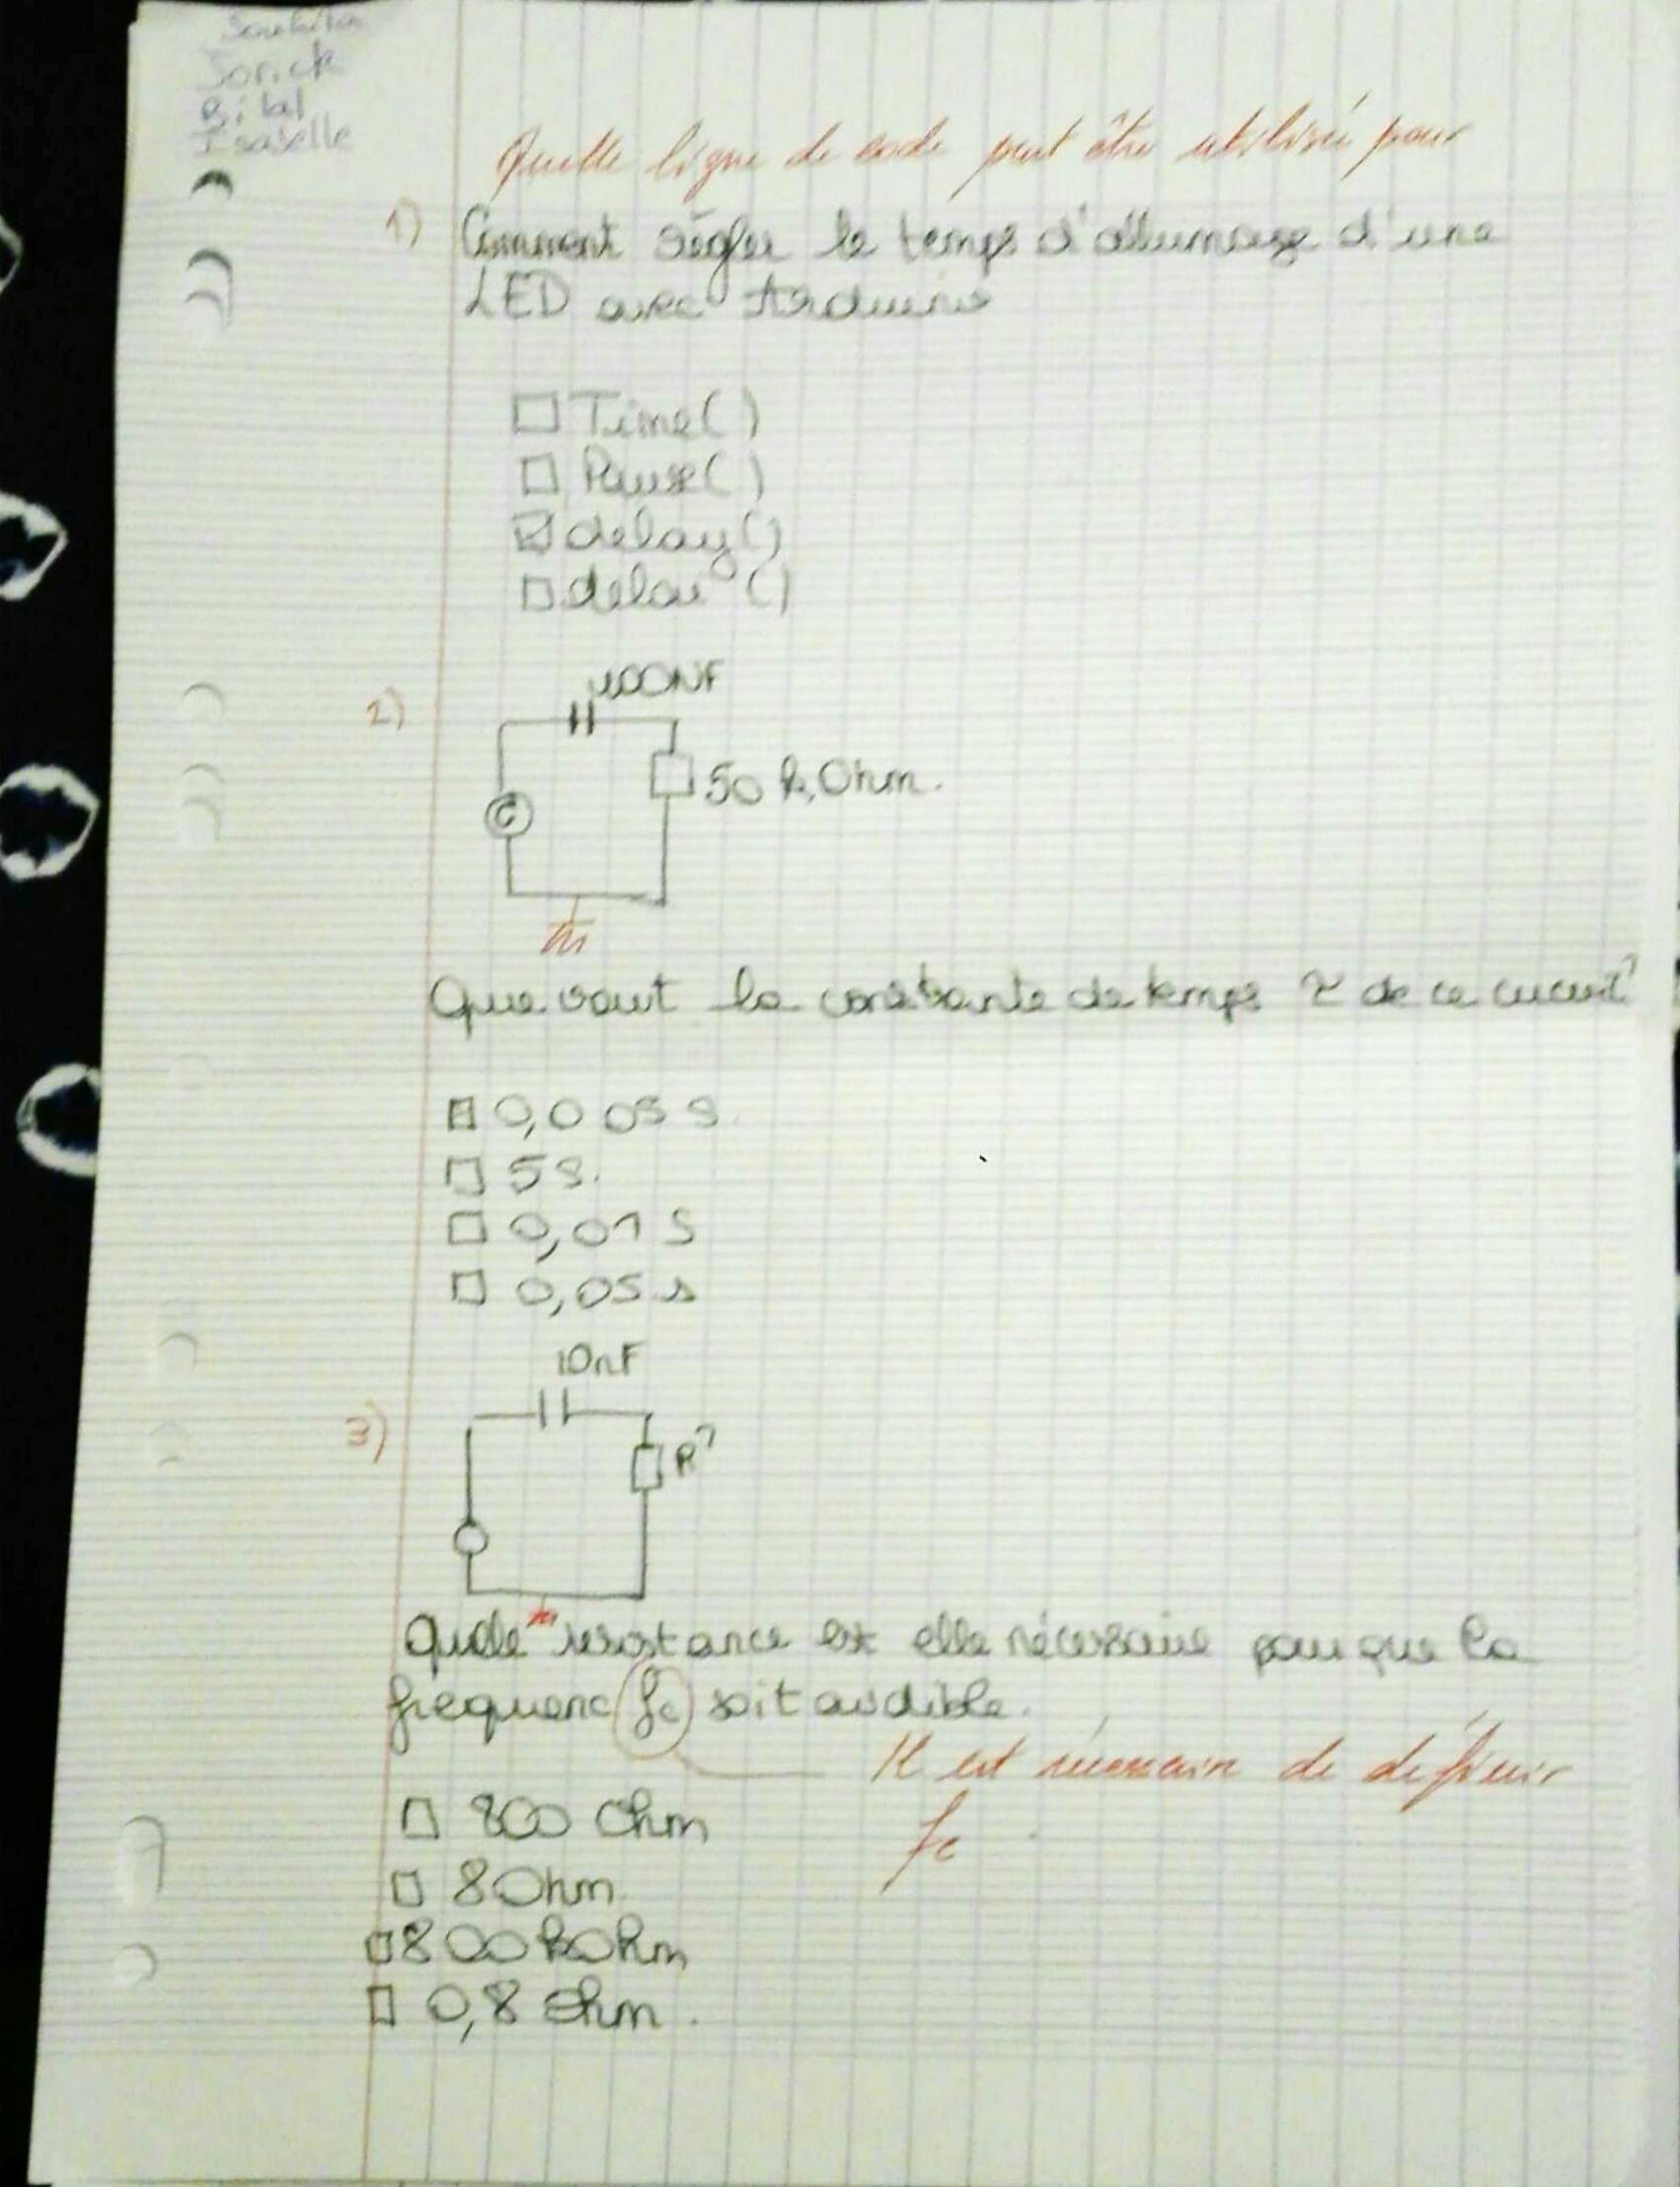 Sorick
Bilal
Isabelle
Quelle ligne de code peut être utilisée pour
1) Comment régler le temps d'allumage d'une
LED avec Arduino
Time()
Pause()
delay()
delai()
100NF
2)
50 k,Ohm.
G
Que vaut la constante de temps τ de ce circuit?
0,005 s.
5 s.
0,01 S
0,05 s
10nF
3)
R?
Quelle resistance est elle nécessaire pour que la
frequenc fc soit audible.
Il est nécessaire de définir
fc
800 Ohm
8 Ohm
800 kOhm
0,8 Ohm.